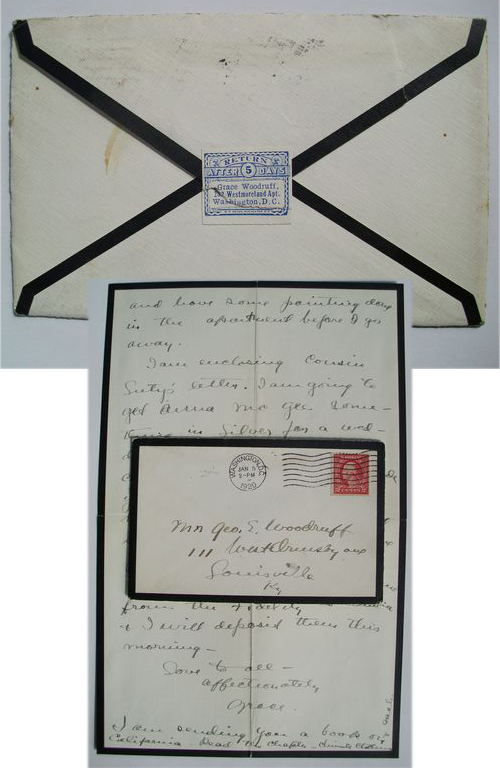 RETURN
AFTER 5 DAYS
Grace Woodruff,
Westmoreland Apt.
Washington, D.C.
and have some painting done
in the apartment before I go
away.
I am enclosing Cousin
letter. I am going to
get Anna Mc Gee some-
thing in silver for a wed-
WASHINGTON, D.C.
JAN 5
2-PM
1920
Mr Geo. E. Woodruff
111 West Ormsby ave
Louisville
Ky
from the Fidelity
& I will deposit them this
morning—
Love to all—
affectionately
Grace.
I am sending you a book on
California Read the chapter